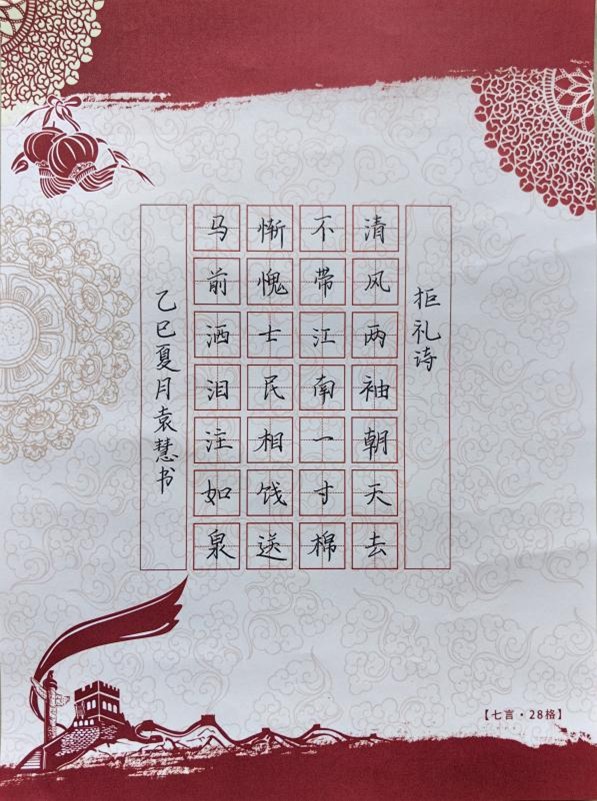 拒礼诗
清风两袖朝天去
不带江南一寸棉
惭愧士民相饯送
马前洒泪注如泉
乙巳夏月袁慧书
【七言·28格】